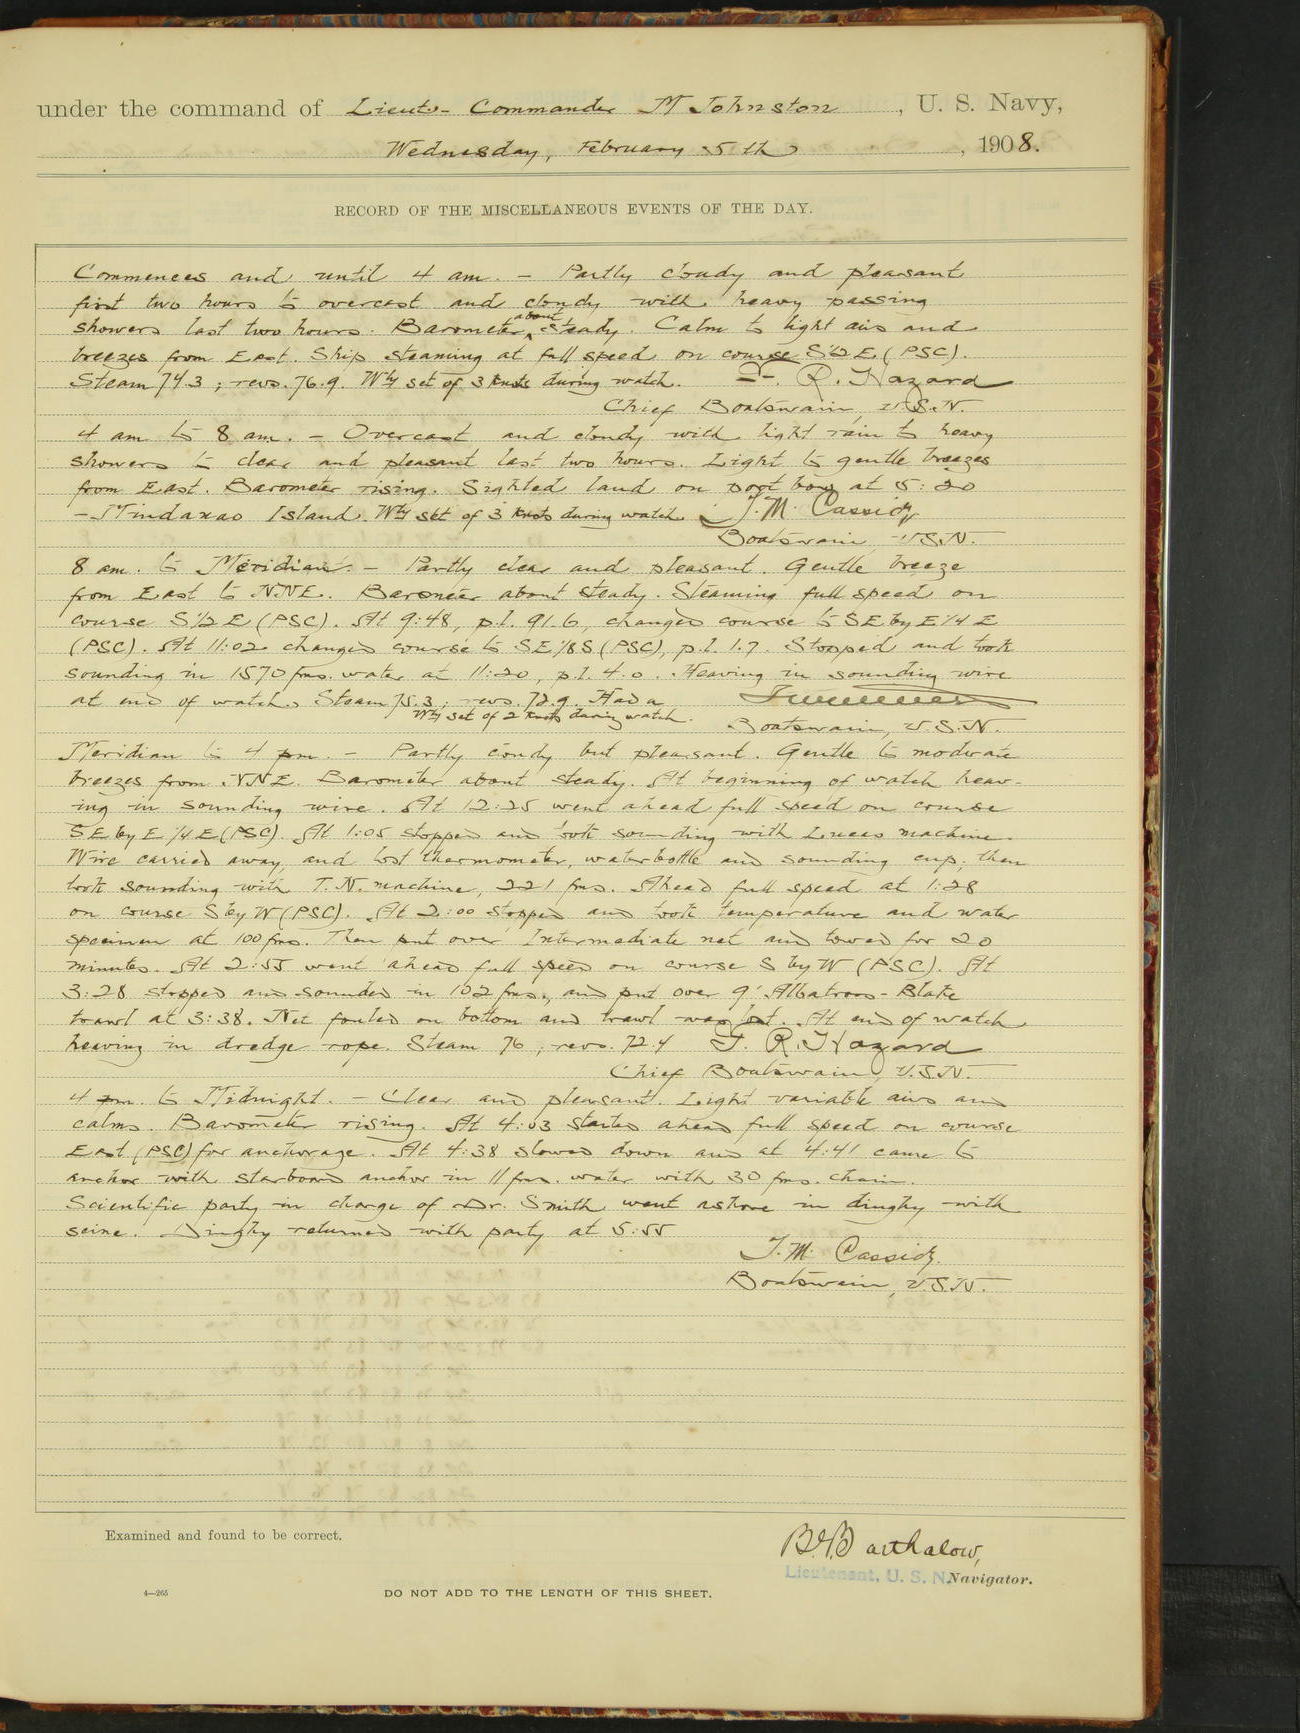 under the command of Lieut.- Commander M Johnston, U. S. Navy,
Wednesday, February 5th, 1908.
RECORD OF THE MISCELLANEOUS EVENTS OF THE DAY.
Commences and until 4 am. - Partly cloudy and pleasant
first two hours to overcast and cloudy with heavy passing
showers last two hours. Barometer about steady. Calm to light airs and
breezes from East. Ship steaming at full speed on course S½E (PSC).
Steam 74.3; revs. 76.9. Wly set of 3 knots during watch. F. R. Hazard
Chief Boatswain, U.S.N.
4 am to 8 am. - Overcast and cloudy with light rain to heavy
showers to clear and pleasant last two hours. Light to gentle breezes
from East. Barometer rising. Sighted land on port bow at 5:20
- Mindanao Island. Wly set of 3 knots during watch. J. M. Cassidy
Boatswain, U.S.N.
8 am. to Meridian. - Partly clear and pleasant. Gentle breeze
from East to NNE. Barometer about steady. Steaming full speed on
course S½E (PSC). At 9:48, p.l. 91.6, changed course to SE by E ¼ E
(PSC). At 11:02 changed course to SE⅛S (PSC), p.l. 1.7. Stopped and took
sounding in 1570 fms. water at 11:20, p.l. 4.0. Heaving in sounding wire
at end of watch. Steam 75.3; revs. 72.9. Had a
Wly set of 2 knots during watch.
Boatswain, U.S.N.
Meridian to 4 pm - Partly cloudy but pleasant. Gentle to moderate
breezes from NNE. Barometer about steady. At beginning of watch heav-
ing in sounding wire. At 12:25 went ahead full speed on course
SE by E ¼ E (PSC). At 1:05 stopped and took sounding with Lucas machine.
Wire carried away, and lost thermometer, waterbottle and sounding cup; then
took sounding with T.N. machine, 221 fms. Ahead full speed at 1:28
on course S by W (PSC). At 2:00 stopped and took temperature and water
specimen at 100 fms. Then put over Intermediate net and towed for 20
minutes. At 2:55 went ahead full speed on course S by W (PSC). At
3:28 stopped and sounded in 102 fms., and put over 9' Albatross-Blake
trawl at 3:38. Net fouled on bottom and trawl was lost. At end of watch
heaving in dredge rope. Steam 76; revs. 72.4 F. R. Hazard
Chief Boatswain, U.S.N.
4 pm. to Midnight. - Clear and pleasant. Light variable airs and
calms. Barometer rising. At 4:03 started ahead full speed on course
East (PSC) for anchorage. At 4:38 slowed down and at 4:41 came to
anchor with starboard anchor in 11 fms. water with 30 fms. chain.
Scientific party in charge of Dr. Smith went ashore in dinghy with
seine. Dinghy returned with party at 5:55
J. M. Cassidy.
Boatswain, U.S.N.
Examined and found to be correct.
Barthalow,
Lieutenant, U. S. N. Navigator.
4—265
DO NOT ADD TO THE LENGTH OF THIS SHEET.